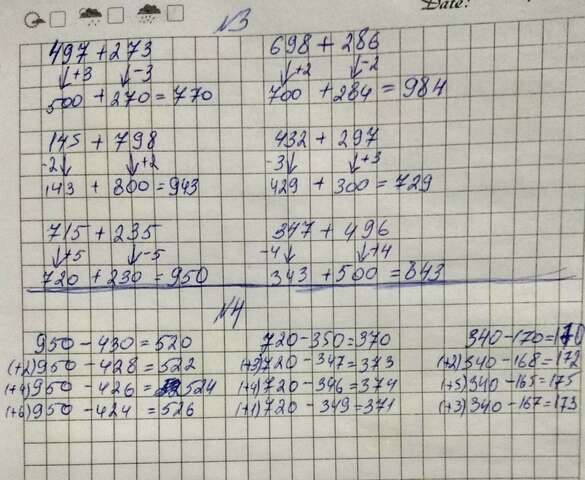 Date:
№3
497 + 273   698 + 286
↓+3 ↓-3   ↓+2 ↓-2
500 + 270 = 770   700 + 284 = 984
145 + 798   432 + 297
-2↓ ↓+2   -3↓ ↓+3
143 + 800 = 943   429 + 300 = 729
715 + 235   347 + 496
↓+5 ↓-5   -4↓ ↓+4
720 + 230 = 950   343 + 500 = 843
№4
950 - 430 = 520   720 - 350 = 370   340 - 170 = 170
(+2) 950 - 428 = 522   (+3) 720 - 347 = 373   (+2) 340 - 168 = 172
(+4) 950 - 426 = 524   (+4) 720 - 346 = 374   (+5) 340 - 165 = 175
(+6) 950 - 424 = 526   (+1) 720 - 349 = 371   (+3) 340 - 167 = 173